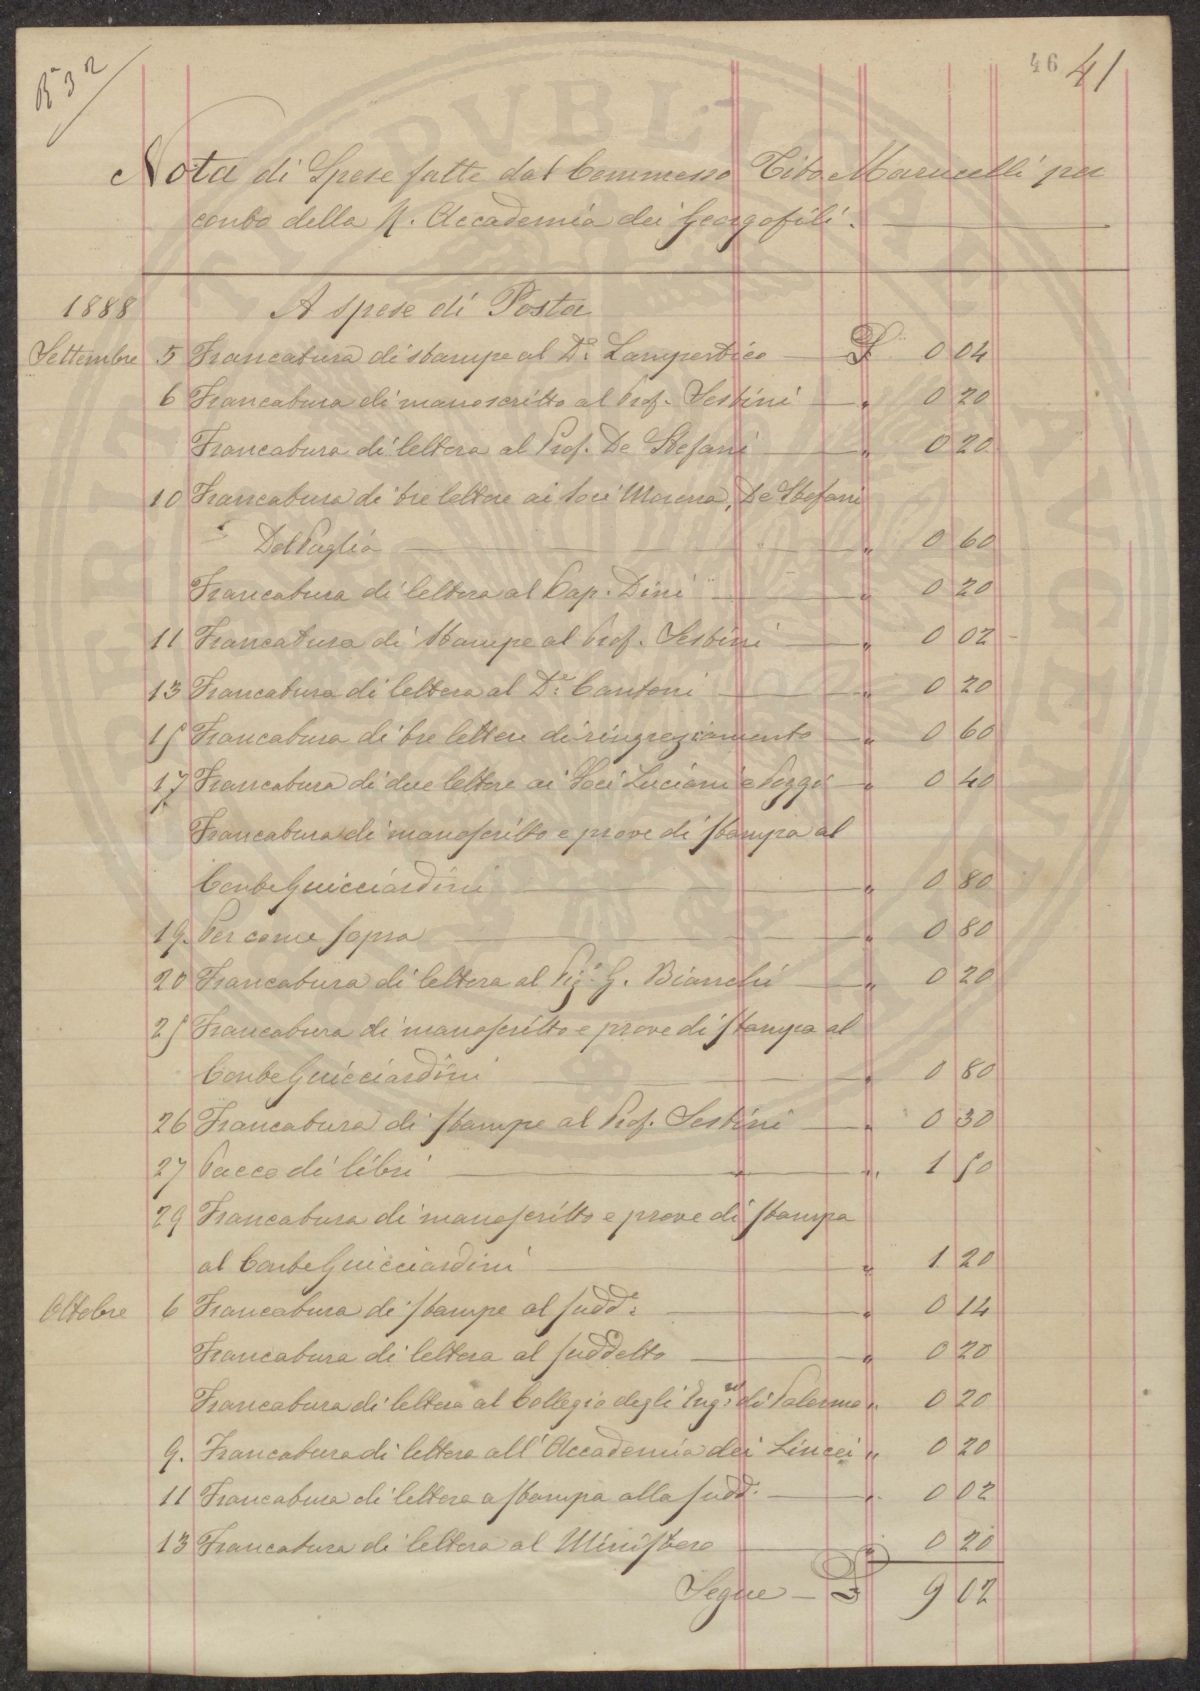 Ra 32
46 41
Nota di Spese fatte dal Commesso Tito Marucelli per
conto della R. Accademia dei Georgofili.
1888 A spese di Posta
Settembre 5 Francatura di stampe al Dr. Lampertico £ 0 04
6 Francatura di manoscritto al Prof. Sestini " 0 20
Francatura di lettera al Prof. De Stefani " 0 20
10 Francatura di tre lettere ai Soci Morena, De Stefani
Del Puglia " 0 60
Francatura di lettera al Cap. Dini " 0 20
11 Francatura di Stampe al Prof. Sestini " 0 02
13 Francatura di lettera al Dr. Cantoni " 0 20
15 Francatura di tre lettere di ringraziamento " 0 60
17 Francatura di due lettere ai Soci Luciani e Poggi " 0 40
Francatura di manoscritto e prove di stampa al
Conte Guicciardini " 0 80
19. Per come sopra " 0 80
20 Francatura di lettera al Sig. G. Bianchi " 0 20
25 Francatura di manoscritto e prove di stampa al
Conte Guicciardini " 0 80
26 Francatura di stampe al Prof. Sestini " 0 30
27 Pacco di libri " 1 50
29 Francatura di manoscritto e prove di stampa
al Conte Guicciardini " 1 20
Ottobre 6 Francatura di stampe al sudd.o " 0 14
Francatura di lettera al suddetto " 0 20
Francatura di lettera al Collegio degli Ing.ri di Palermo " 0 20
9. Francatura di lettera all'Accademia dei Lincei " 0 20
11 Francatura di lettera a stampa alla sudd. " 0 02
13 Francatura di lettera al Ministero " 0 20
Segue £ 9 02